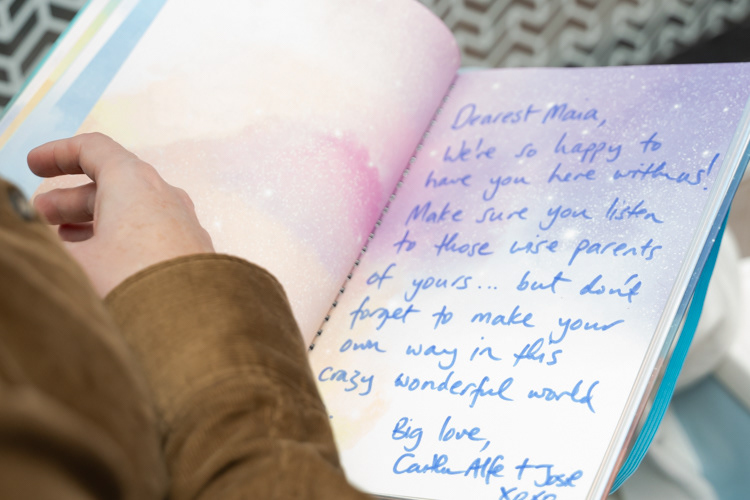 Dearest Maia,
We're so happy to
have you here with us!
Make sure you listen
to those wise parents
of yours... but don't
forget to make your
own way in this
crazy wonderful world
Big love,
Alfe + Jose